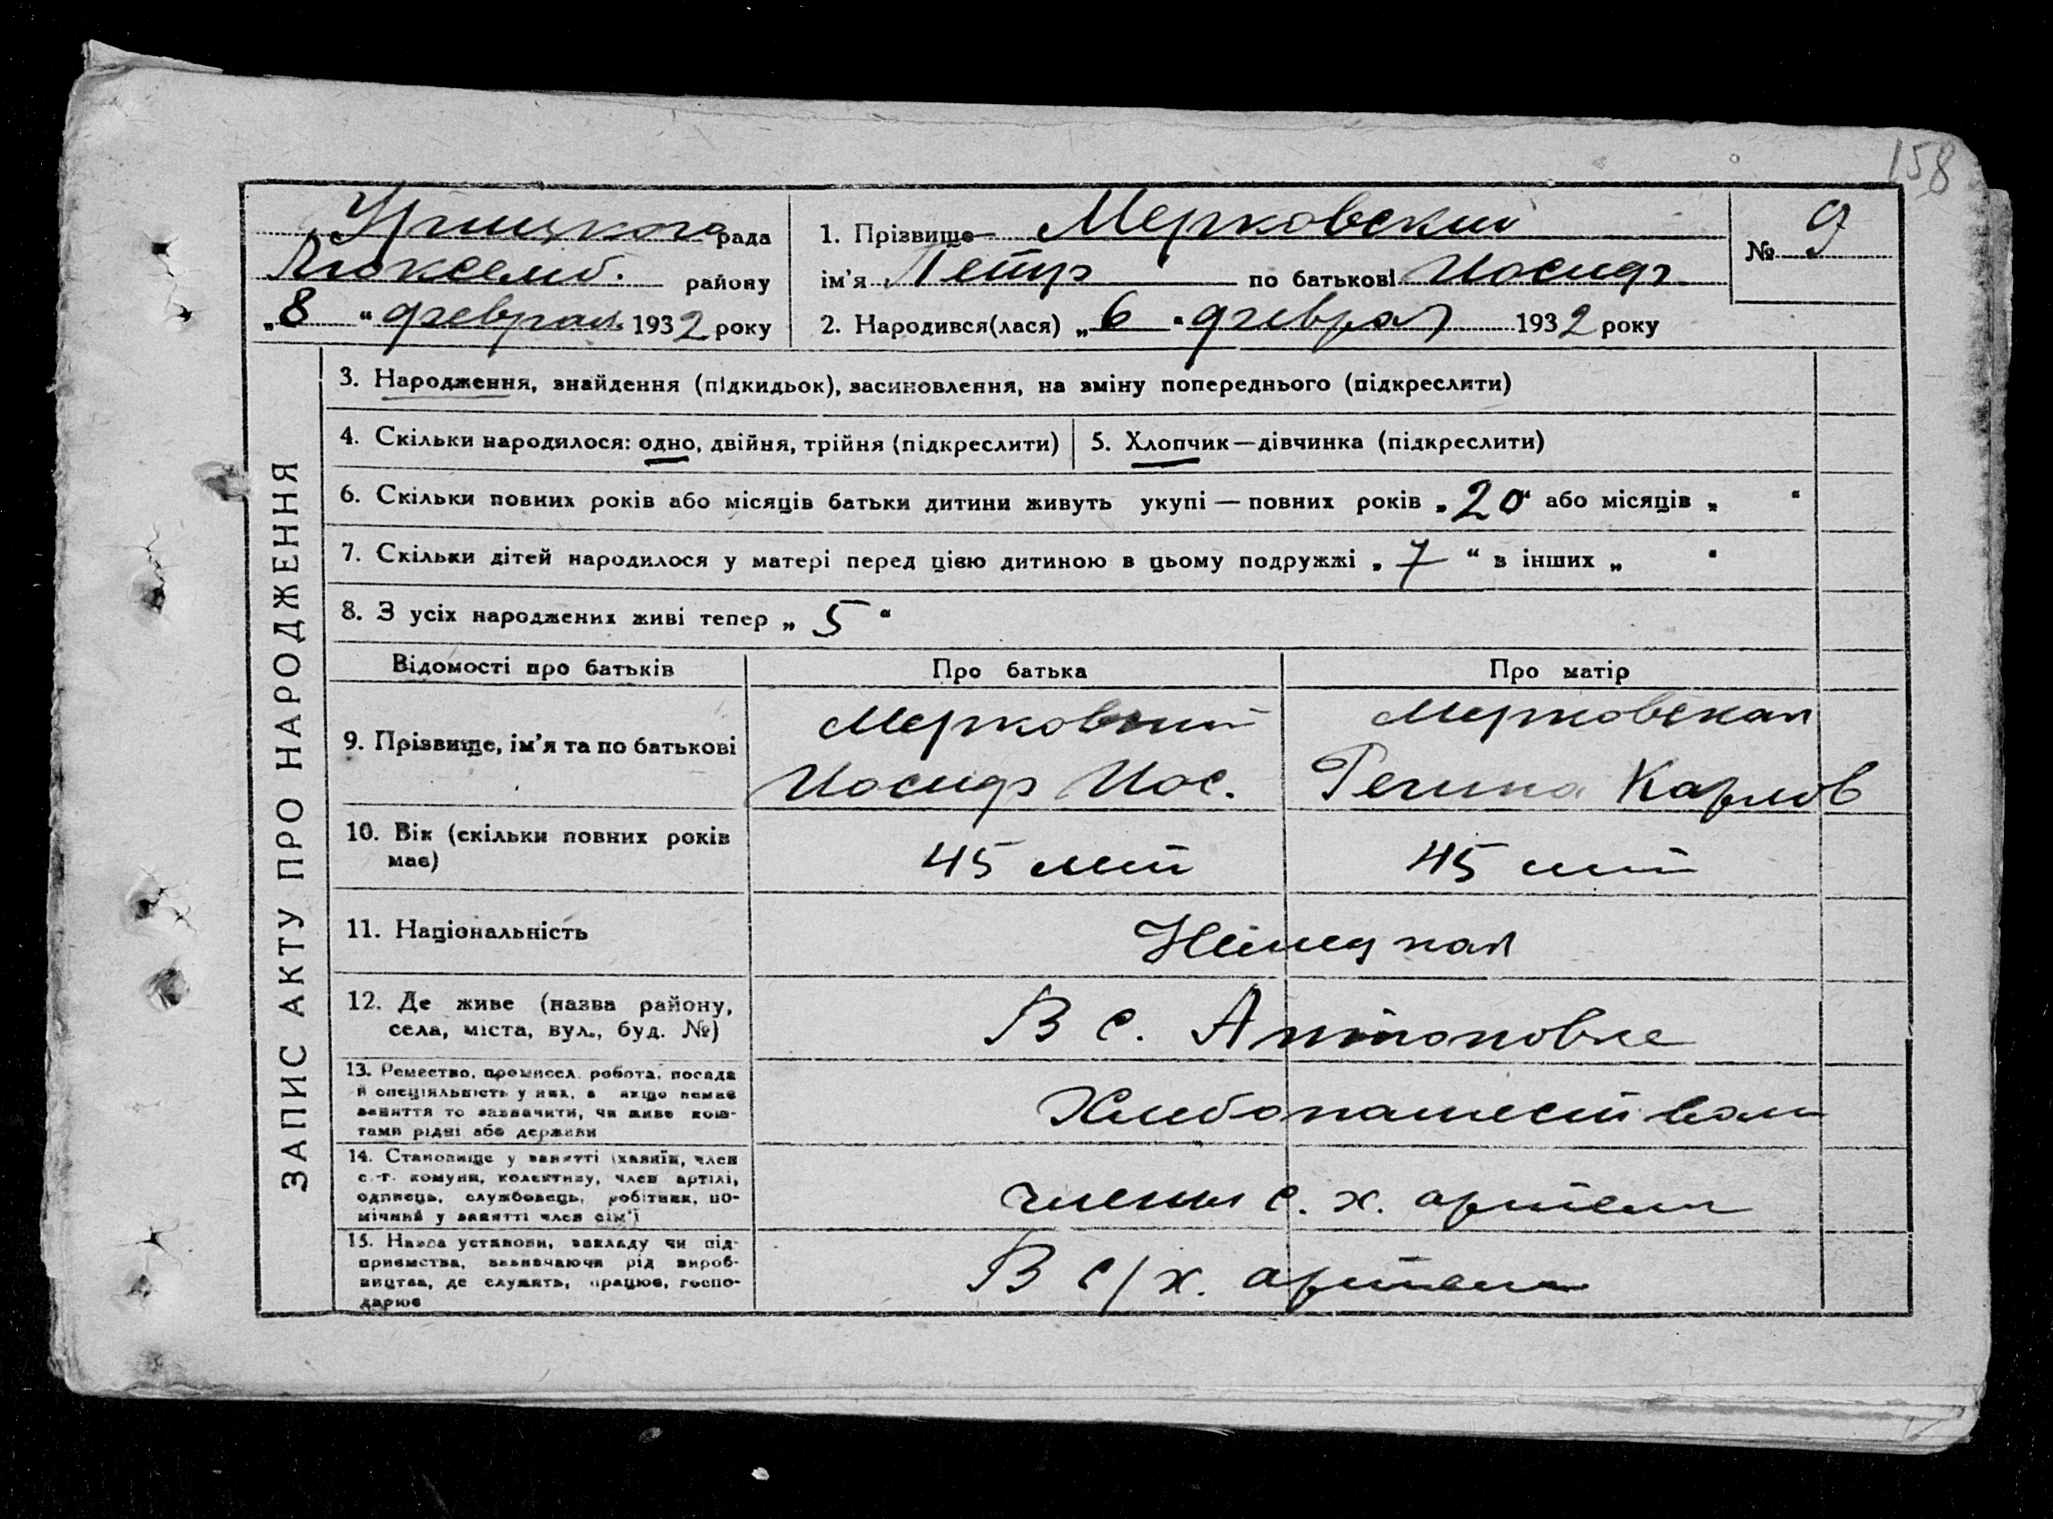 158
Урицкого рада
Люксемб. району
„8“ феврал. 1932 року
1. Прізвище Мерковский
ім’я Петр по батькові Иосиф
2. Народився(лася) „6“ феврал 1932 року
№ 9
ЗАПИС АКТУ ПРО НАРОДЖЕННЯ
3. Народження, знайдення (підкидьок), засиновлення, на зміну попереднього (підкреслити)
4. Скільки народилося: одно, двійня, трійня (підкреслити)
5. Хлопчик—дівчинка (підкреслити)
6. Скільки повних років або місяців батьки дитини живуть укупі — повних років „20“ або місяців „ “
7. Скільки дітей народилося у матері перед цією дитиною в цьому подружжі „7“ в інших „ “
8. З усіх народжених живі тепер „5“
Відомості про батьків Про батька Про матір
9. Прізвище, ім’я та по батькові
Мерковский
Иосиф Иос.
Мерковская
Регина Карлов
10. Вік (скільки повних років
має)
45 лет
45 лет
11. Національність
Немецкая
12. Де живе (назва району,
села, міста, вул., буд. №)
В с. Антоновке
13. Ремество, промисел. робота, посада
й спеціяльність у них, а якщо немає
заняття то зазначити, чи живе кош-
тами рідні або держави
Хлебопашеством
14. Становище у занятті (хазяїн, член
с.-г. комуни, колективу, член артілі,
одинець, службовець, робітник, по-
мічний у занятті член сім’ї
члены с. х. артели
15. Назва установи, закладу чи під-
приємства, зазначаючи рід вироб-
ництва, де служить, працює, госпо-
дарює
В с/х. артели